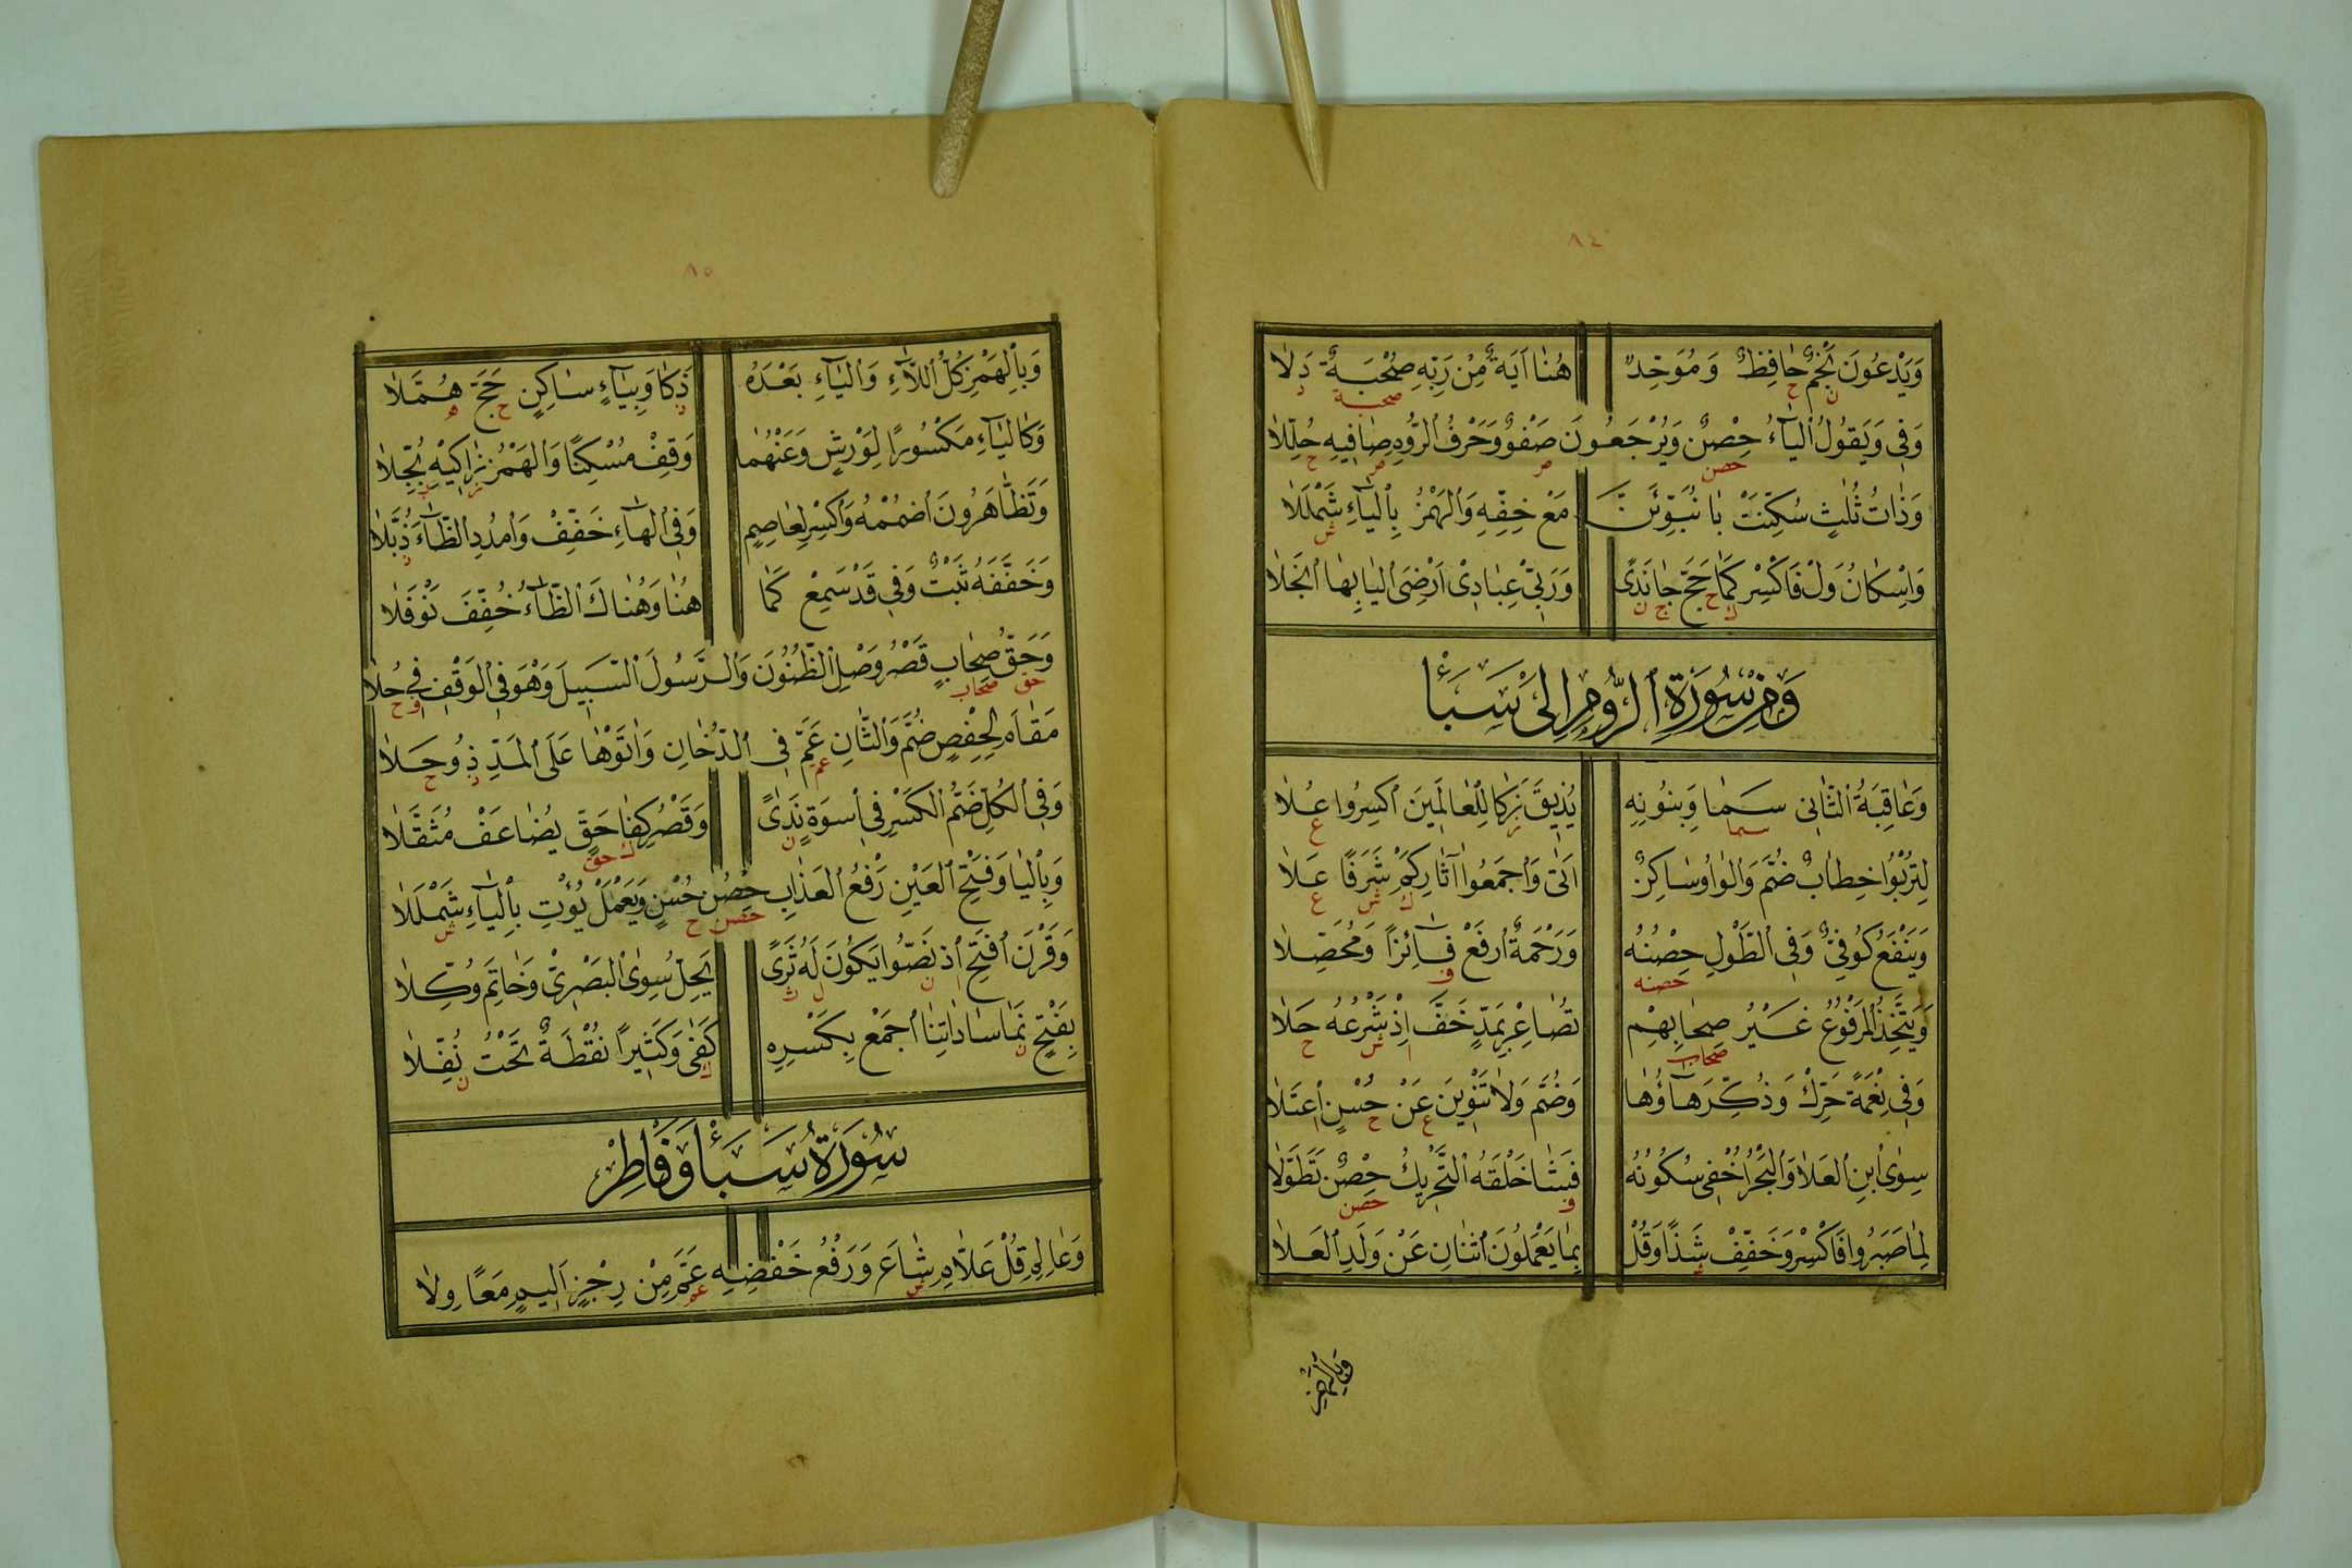 ٨٤
وَيَدْعُونَ نَجْمٌ حَافِظٌ وَمُوَحِّدٌ هُنَا آيَةٌ مِنْ رَبِّهِ صُحْبَةٌ دَلَا
ن ح صحبة د
وَفِي وَيَقُولُ الْيَاءُ حِصْنٌ وَيُرْجَعُونَ صَفْوٌ وَحَرْفُ الرُّومِ صَافِيهِ حُلِّلَا
حصن ص ص ح
وَذَاتُ ثُلَاثٍ سُكِّنَتْ بَا نُبَوِّئَنَّ مَعْ خِفِّهِ وَالْهَمْزُ بِالْيَاءِ شَمْلَلَا
ش
وَاِسْكَانُ وَلْ فَاكْسِرْ كَمَا حَجَّ جَا نَدًى وَرَبِّي عِبَادِي أَرْضِيَ الْيَا بِهَا انْجَلَا
ك ح ج ن
وَمِنْ سُورَةِ الرُّومِ إِلَى سَبَأْ
وَعَاقِبَةُ الثَّانِي سَمَا وَبِنُونِهِ يُذِيقَ زَكَا لِلْعَالَمِينَ اكْسِرُوا عُلَا
سما ز ع
لِتُرْبُوا خِطَابٌ ضُمَّ وَالْوَاوُ سَاكِنٌ أَتَى وَاجْمَعُوا آثَارِ كَمْ شَرَفًا عَلَا
ك ش ع
وَيَنْفَعُ كُوفِيٌّ وَفِي الطَّوْلِ حِصْنُهُ وَرَحْمَةٌ ارْفَعْ فَائِزًا وَمُحَصِّلَا
حصنه ف
وَيَتَّخِذُ الْمَرْفُوعُ غَيْرُ صِحَابِهِمْ تُصَاعِرْ بِمَدٍّ خَفَّ إِذْ شَرْعُهُ حَلَا
صحاب ا ش ح
وَفِي نِعْمَةً حَرِّكْ وَذُكِّرَ هَاؤُهَا وَضُمَّ وَلَا تَنْوِينَ عَنْ حُسْنٍ اعْتَلَا
ع ح ا
سِوَى ابْنِ الْعَلَا وَالْبَحْرُ أُخْفِي سُكُونُهُ فَشَا خَلْقَهُ التَّحْرِيكُ حِصْنٌ تَطَوَّلَا
ف حصن
لِمَا صَبَرُوا فَاكْسِرْ وَخَفِّفْ شَذًا وَقُلْ بِمَا يَعْمَلُونَ اثْنَانِ عَنْ وَلَدِ الْعَلَا
ش
وَبِالْهَمْزِ
٨٥
وَبِالْهَمْزِ كُلُّ اللَّاءِ وَالْيَاءِ بَعْدَهُ ذَكَا وَبِيَاءٍ سَاكِنٍ حَجَّ هُمَّلَا
ذ ح ه
وَكَالْيَاءِ مَكْسُورًا لِوَرْشٍ وَعَنْهُمَا وَقِفْ مُسْكِنًا وَالْهَمْزُ زَاكِيهِ بُجِّلَا
ز ب
وَتَظَّاهَرُونَ اضْمُمْهُ وَاكْسِرْ لِعَاصِمٍ وَفِي الْهَاءِ خَفِّفْ وَامْدُدِ الظَّاءَ ذُبَّلَا
ذ
وَخَفَّفَهُ ثَبْتٌ وَفِي قَدْ سَمِعْ كَمَا هُنَا وَهُنَاكَ الظَّاءُ خُفِّفَ نَوْفَلَا
وَحَقُّ صِحَابٍ قَصْرُ وَصْلِ الظُّنُونَ وَالرَّسُولَ السَّبِيلَ وَهْوَ فِي الْوَقْفِ فِي حُلَا
حق صحاب ف ح
مَقَامَ لِحَفْصٍ ضُمَّ وَالثَّانِ عَمَّ فِي الدُّخَانِ وَاٰتَوْهَا عَلَى الْمَدِّ ذُو حَلَا
عم ذ ح
وَفِي الْكُلِّ ضَمُّ الْكَسْرِ فِي اُسْوَةٌ نَدًى وَقَصْرُ كِفَا حَقٍّ يُضَاعَفْ مُثَقَّلَا
ن ك حق
وَبِالْيَا وَفَتْحِ الْعَيْنِ رَفْعُ الْعَذَابِ حِصْنُ حُسْنٍ وَيَعْمَلْ يُؤْتِ بِالْيَاءِ شَمْلَلَا
حصن ح ش
وَقَرْنَ افْتَحْ اِذْ نَصُّوا يَكُونَ لَهُ ثَرًى يَحِلُّ سِوَى الْبَصْرِيْ وَخَاتِمَ وُكِّلَا
ن ل ث
بِفَتْحٍ نَمَا سَادَاتِنَا اجْمَعْ بِكَسْرِهِ كَفَى وَكَثِيرًا نُقْطَةٌ تَحْتُ نُفِّلَا
ن ك ن
سُورَةُ سَبَأْ وَفَاطِرْ
وَعَالِمِ قُلْ عَلَّامِ شَاعَ وَرَفْعُ خَفْضِهِ عَمَّ مِنْ رِجْزٍ أَلِيمٍ مَعًا وِلَا
ش عم